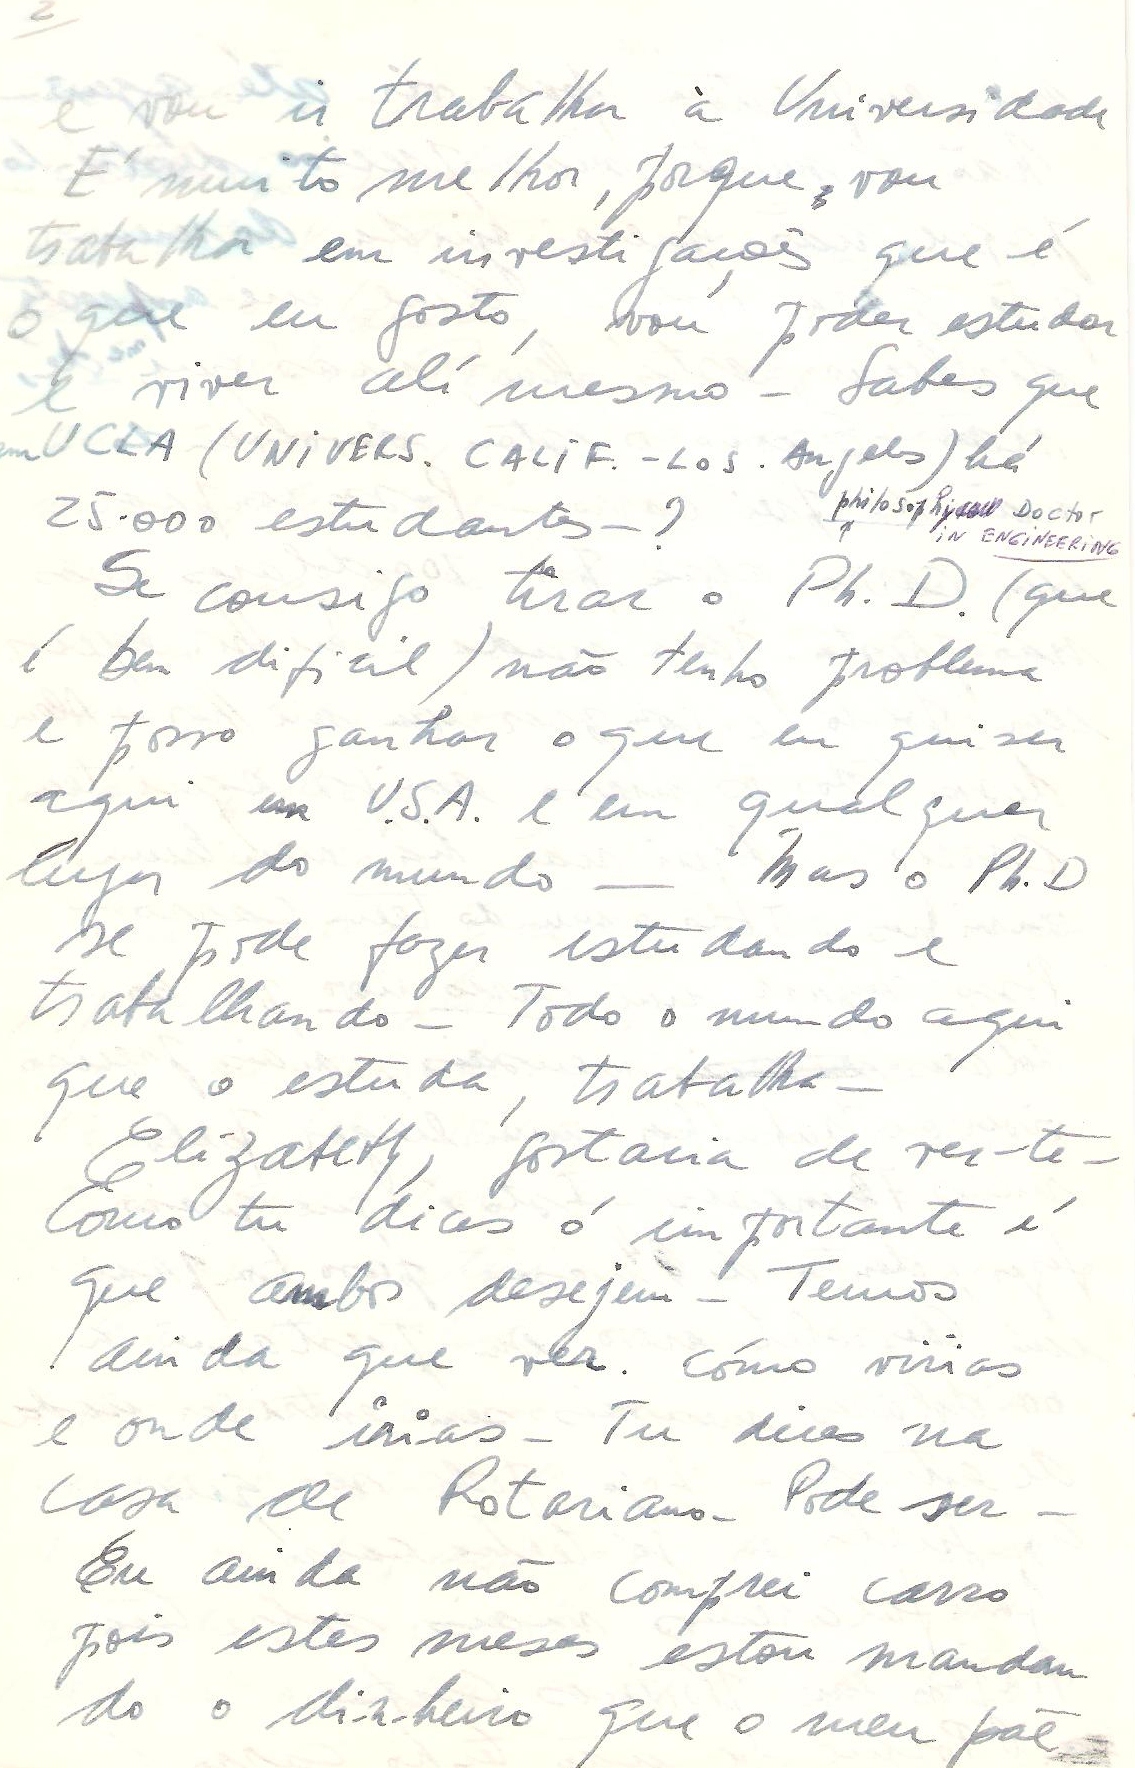 2
e vou ir trabalhar à Universidade
É muito melhor, porque, vou
trabalhar em investigações que é
o que eu gosto, vou poder estudar
e viver alí mesmo - Sabes que
em UCLA (UNIVERS. CALIF. - LOS. Angeles) há
25.000 estudantes - ?
philosophy Doctor
IN ENGINEERING
Se consigo tirar o Ph. D. (que
é bem dificil) não tenho problema
e posso ganhar o que eu quiser
aqui em U.S.A. e em qualquer
lugar do mundo — Mas o Ph. D
se pode fazer estudando e
trabalhando - Todo o mundo aqui
que o estuda, trabalha -
Elizabeth, gostaria de ver-te -
Como tu dices ó importante é
que ambos desejem - Temos
ainda que ver. cómo virias
e onde irias - Tu dices na
casa de Rotariano - Pode ser -
Eu ainda não comprei carro
pois estes meses estou mandan
do o dinheiro que o meu pae